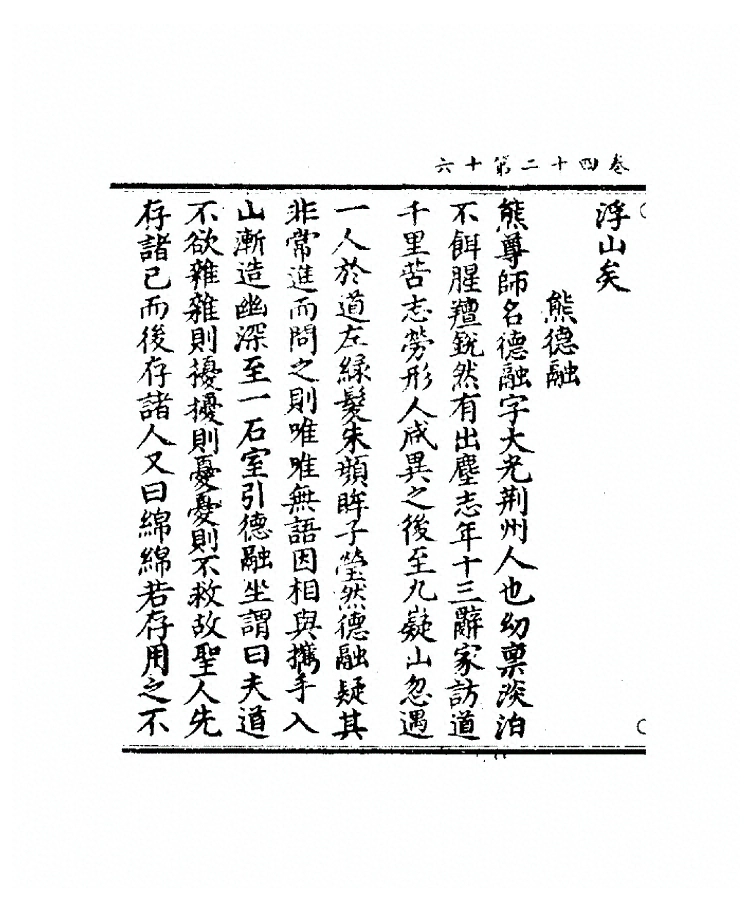 卷四十二第十六
浮山矣
熊德融
熊尊師名德融字大光荆州人也幼稟淡泊
不餌腥羶銳然有出塵志年十三辭家訪道
千里苦志勞形人咸異之後至九嶷山忽遇
一人於道左緑髮朱顏眸子瑩然德融疑其
非常進而問之則唯唯無語因相與攜手入
山漸造幽深至一石室引德融坐謂曰夫道
不欲雜雜則擾擾則憂憂則不救故聖人先
存諸己而後存諸人又曰綿綿若存用之不